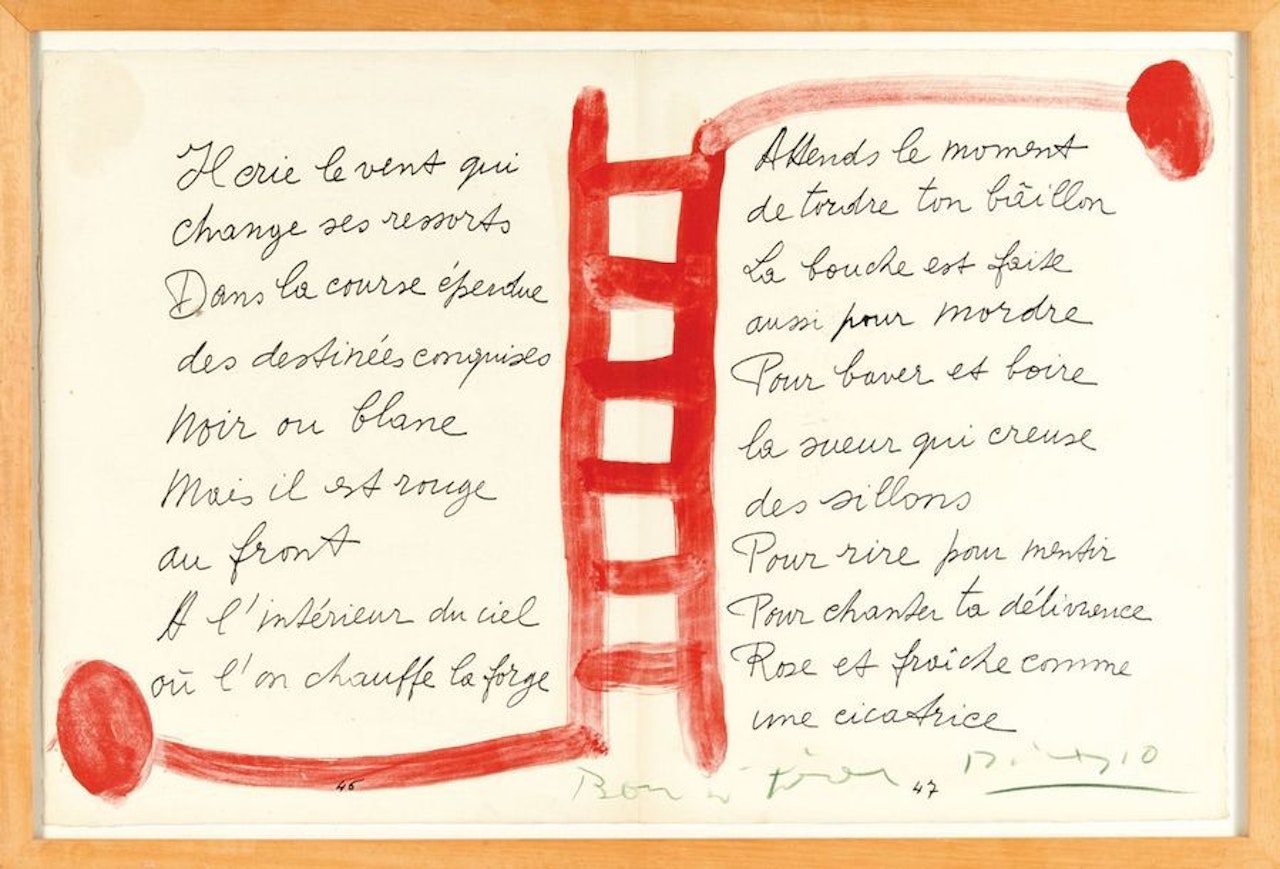 Il crie le vent qui
change ses ressorts
Dans la course éperdue
des destinées conquises
Noir ou blanc
Mais il est rouge
au front
A l'intérieur du ciel
où l'on chauffe la forge
46
Attends le moment
de tordre ton bâillon
La bouche est faite
aussi pour mordre
Pour baver et boire
la sueur qui creuse
des sillons
Pour rire pour mentir
Pour chanter ta délivrence
Rose et fraîche comme
une cicatrice
Bon à tirer Picasso
47